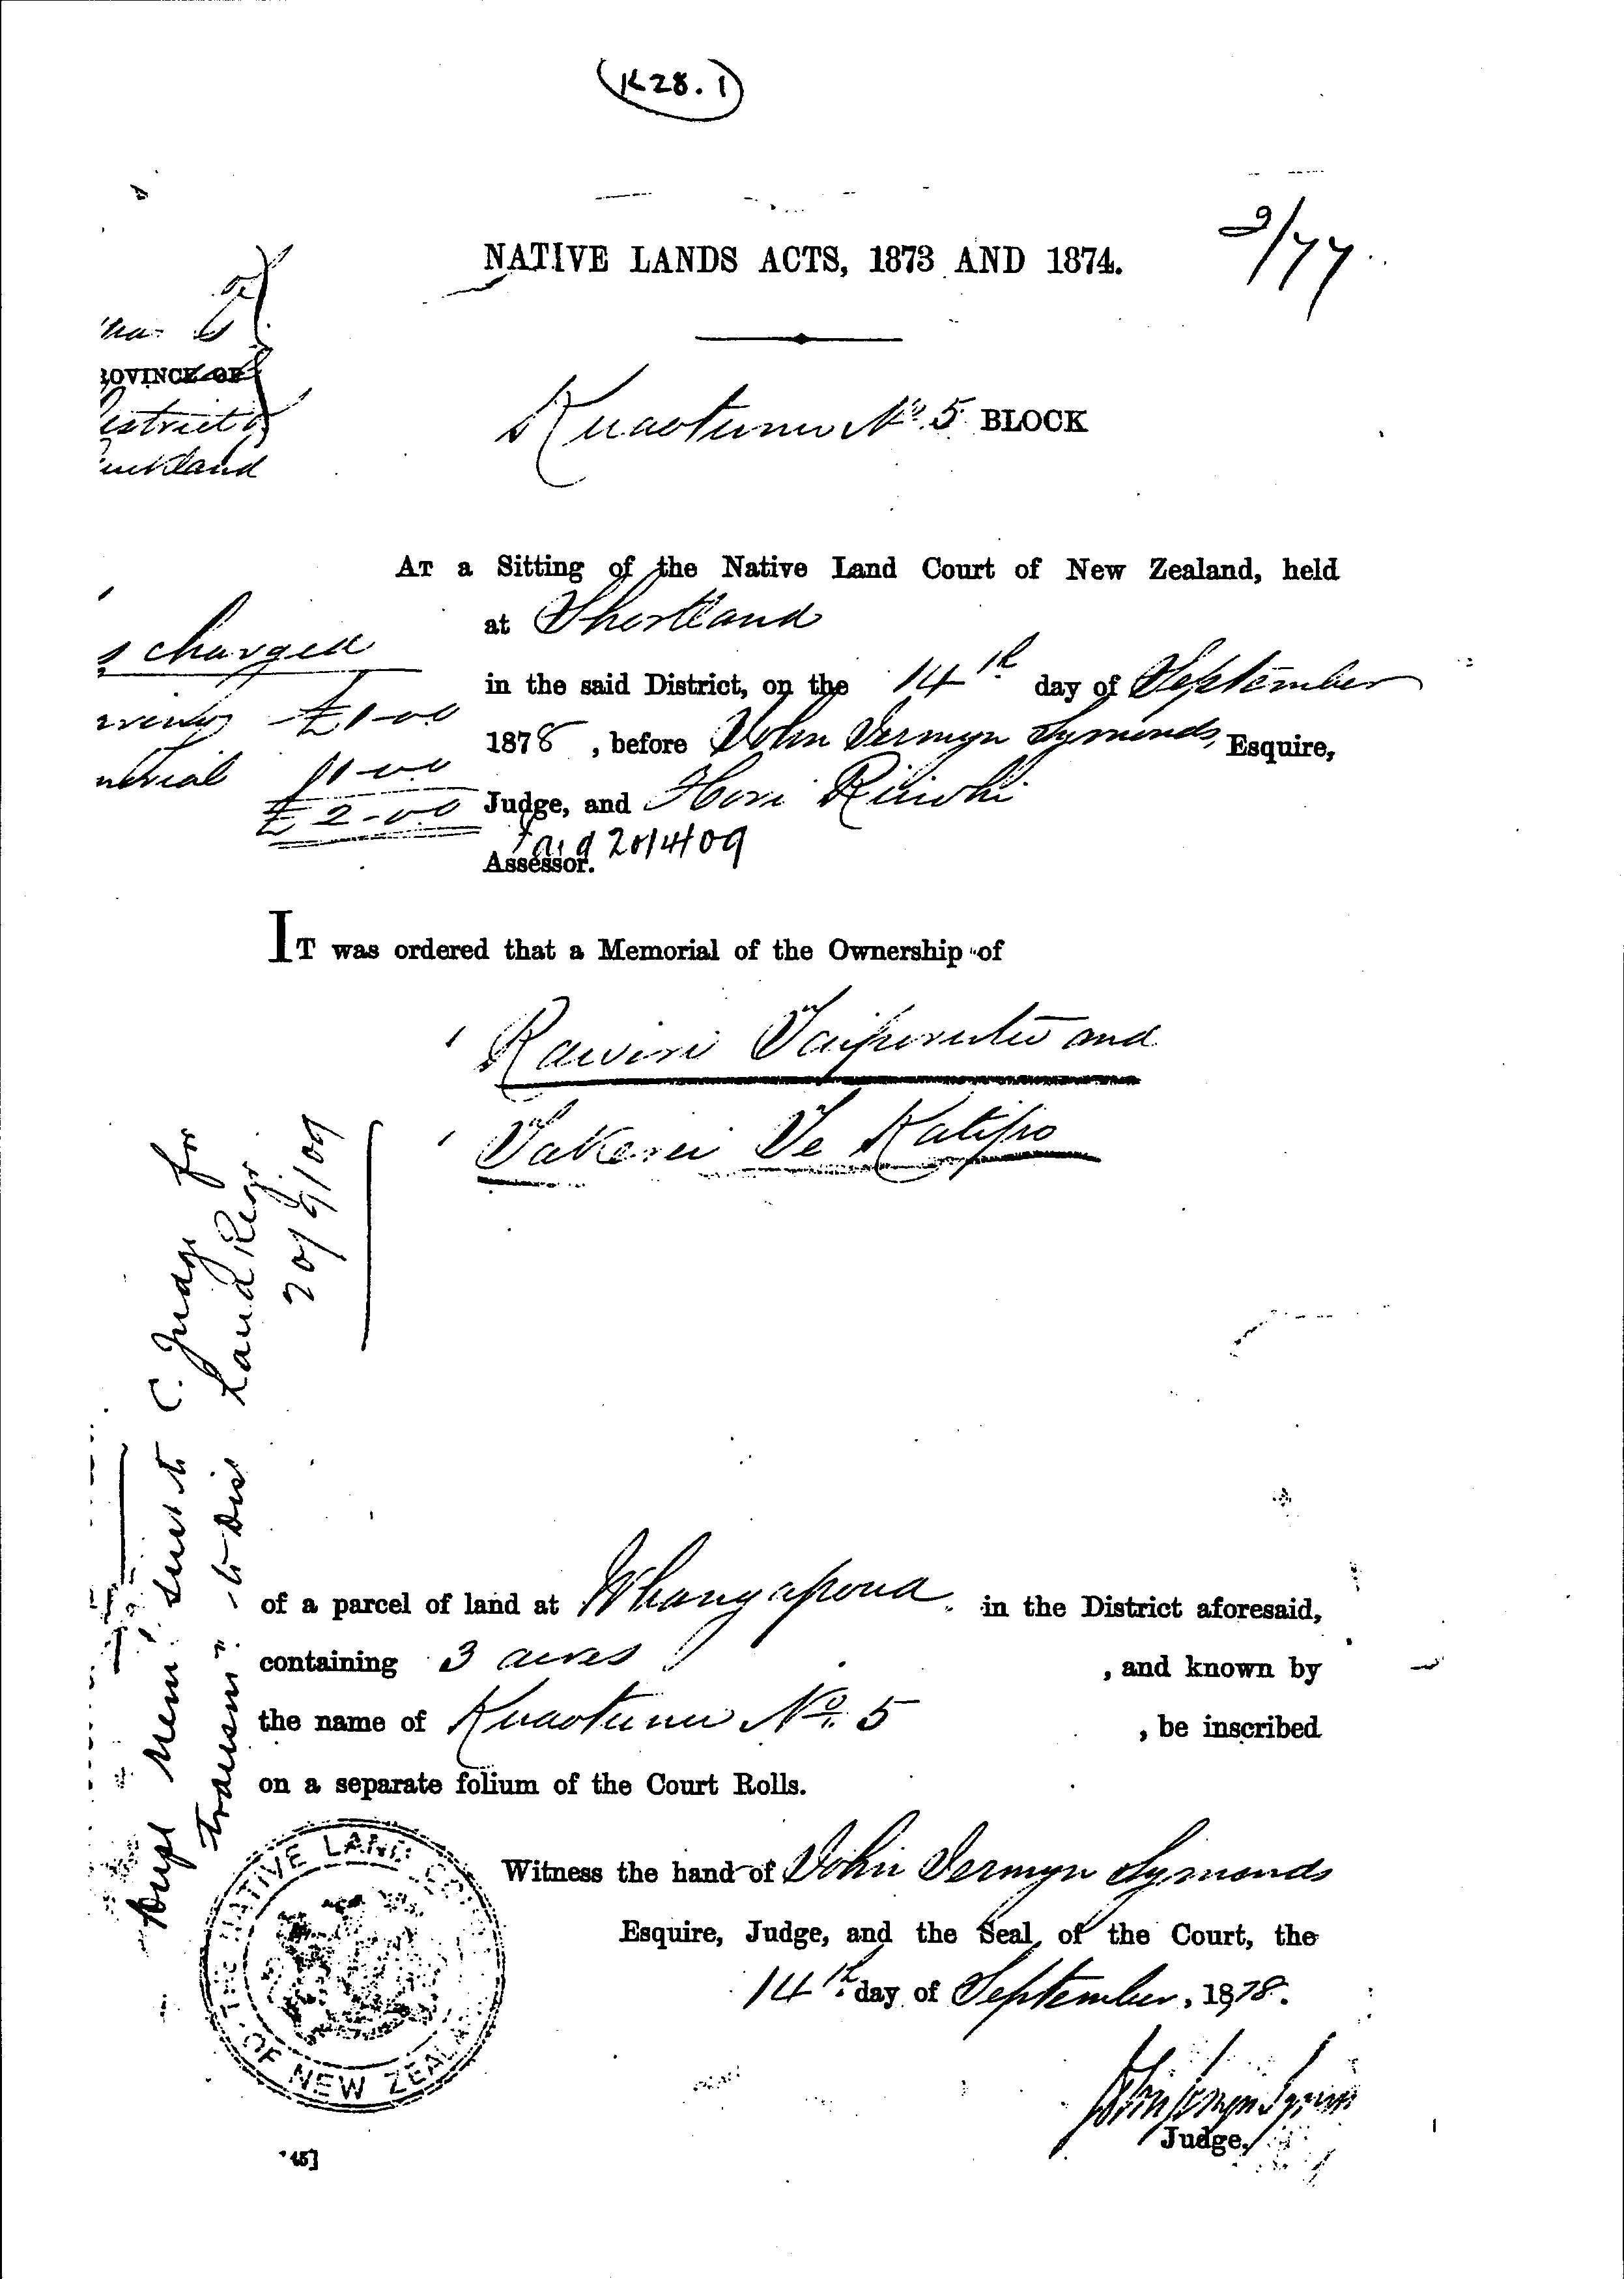 K28.1
NATIVE LANDS ACTS, 1873 AND 1874.
9/77
ROVINCE OF
istrict of
uckland
Kuaotunu No. 5 BLOCK
AT a Sitting of the Native Land Court of New Zealand, held
at Shortland
s charged
in the said District, on the 14th day of September
£1-0.0
1878, before John Jermyn Symonds, Esquire,
morial 1-0.0
Judge, and Hori Ririwhi
£2-0.0
Paid 20/4/09
Assessor.
IT was ordered that a Memorial of the Ownership of
Rawiri Taiporutu and
Takerei Te Katipo
Dupl Mem. sent C. Judge for
transm" to Dis Land Regr.
20/9/09
of a parcel of land at Whangapoua in the District aforesaid,
containing 3 acres, and known by
the name of Kuaotunu No. 5, be inscribed
on a separate folium of the Court Rolls.
Witness the hand of John Jermyn Symonds
Esquire, Judge, and the Seal of the Court, the
14th day of September, 1878.
THE NATIVE LAND COURT OF NEW ZEALAND
John Jermyn Symonds
Judge.
45]